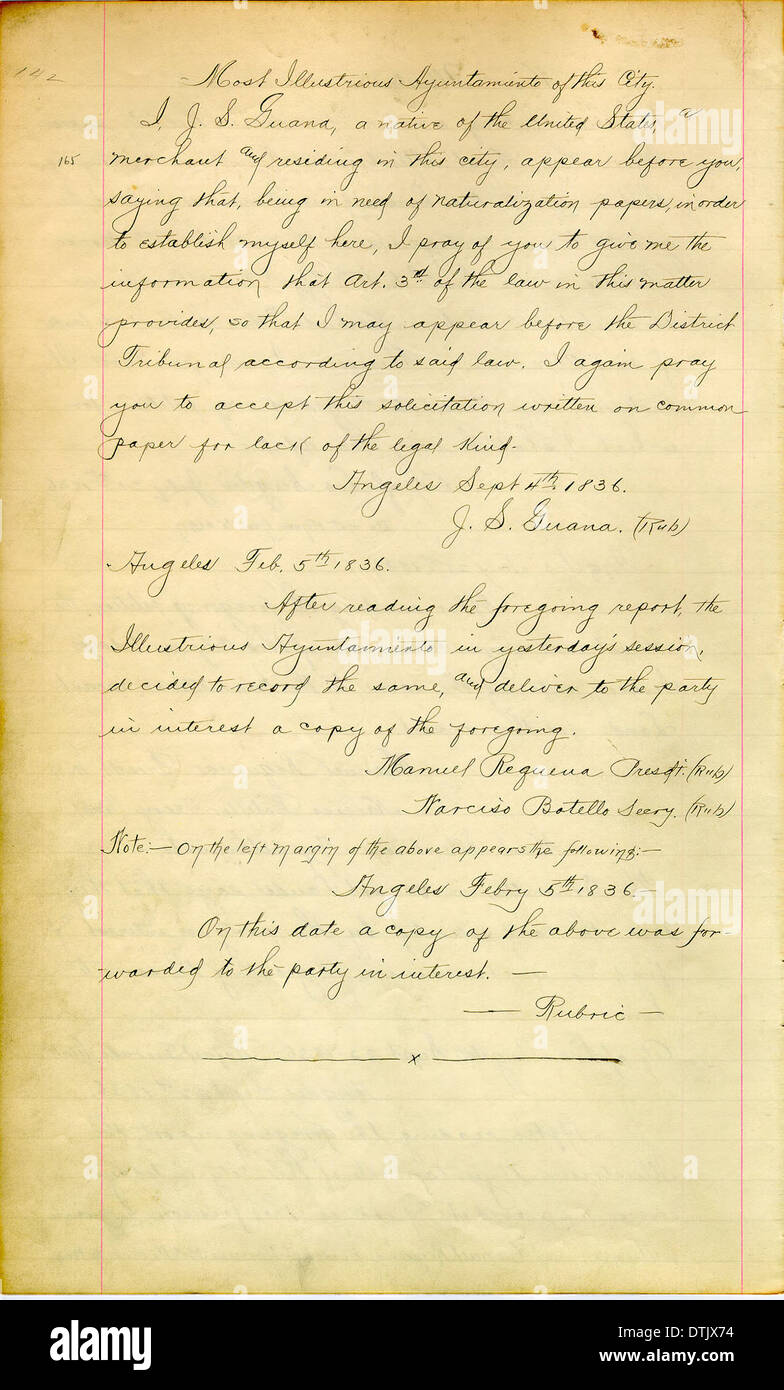 142
Most Illustrious Ayuntamiento of this City.
I, J. S. Guana, a native of the United States, a
165
merchant and residing in this city, appear before you,
saying that, being in need of naturalization papers, in order
to establish myself here, I pray of you to give me the
information that Art. 3rd of the law in this matter
provides, so that I may appear before the District
Tribunal according to said law. I again pray
you to accept this solicitation written on common
paper for lack of the legal kind.
Angeles Sept 4th 1836.
J. S. Guana. (Rub)
Angeles Feb. 5th 1836.
After reading the foregoing report, the
Illustrious Ayuntamiento in yesterday's session,
decided to record the same, and deliver to the party
in interest a copy of the foregoing.
Manuel Requena Presdt. (Rub)
Narciso Botello Secry. (Rub)
Note:- On the left margin of the above appears the following:-
Angeles Febry 5th 1836.-
On this date a copy of the above was for-
warded to the party in interest. —
— Rubric —
x
alamy
alamy stock photo
DTJX74
www.alamy.com